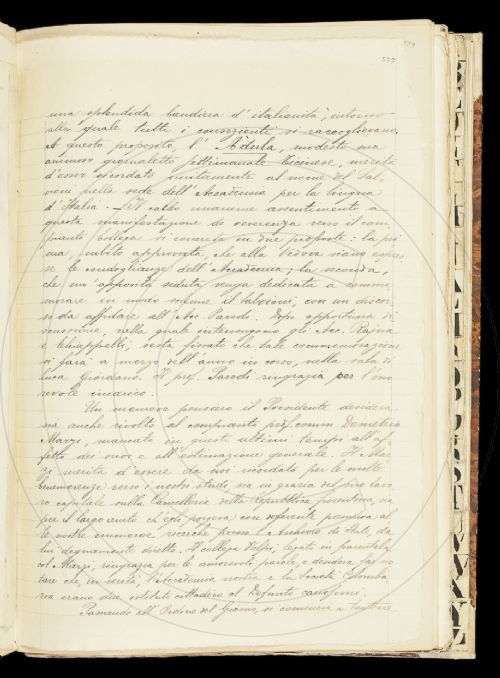 557
una splendida bandiera d'italianità, intorno
alla quale tutti i consenzienti si raccoglievano.
A questo proposito l'Adula, modesto ma
animoso giornaletto settimanale Ticinese, merita
d'esser ricordato unitamente al nome del Sal-
vioni nella sede dell'Accademia per la lingua
d'Italia. Il caldo unanime assentimento a
questa manifestazione di reverenza verso il com-
pianto collega si concreta in due proposte: la pri
ma, subito approvata, che alla Vedova siano espres-
se le condoglianze dell'Accademia; la seconda,
che un'apposita seduta venga dedicata a comme
morare in modo solenne il Salvioni, con un discor
so da affidare all'Acc. Parodi. Dopo opportuna di
scussione, nella quale intervengono gli Acc. Rajna
e Chiappelli, resta fissato che tale commemorazione
si farà a marzo dell'anno in corso, nella sala di
Luca Giordano. Il prof. Parodi ringrazia per l'ono
revole incarico.
Un memore pensiero il Presidente desidera
sia anche rivolto al compianto prof. comm. Demetrio
Marzi, mancato in questi ultimi tempi all'af-
fetto dei suoi e all'estimazione generale. Il Mar
zi merita d'essere da noi ricordato per le molte
benemerenze verso i nostri studi, sia in grazia del suo lavo
ro capitale sulla Cancelleria della Repubblica fiorentina, sia
per il largo aiuto che egli porgeva con deferente premura al
le nostre numerose ricerche presso l'Archivio di Stato, da
lui degnamente diretto. Il collega Volpi, legato in parentela
col Marzi, ringrazia per le amorevoli parole, e desidera far no
tare che, in verità, l'Accademia nostra e la Società Colomba
ria erano due istituti cittadini al Defunto carissimi.
Passando all'Ordine del Giorno, si comincia a trattare